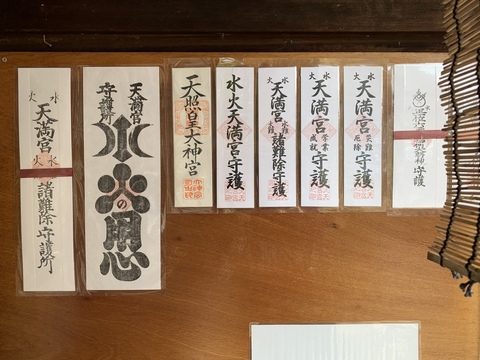 水 火
天満宮
水 火
諸難除守護所
天満宮
守護所
水
火の用心
天照皇大神宮
水火天満宮守護
水 火
天満宮
諸難除守護
水 火
天満宮
学業
成就
守護
水 火
天満宮
災難
厄除
守護
守護